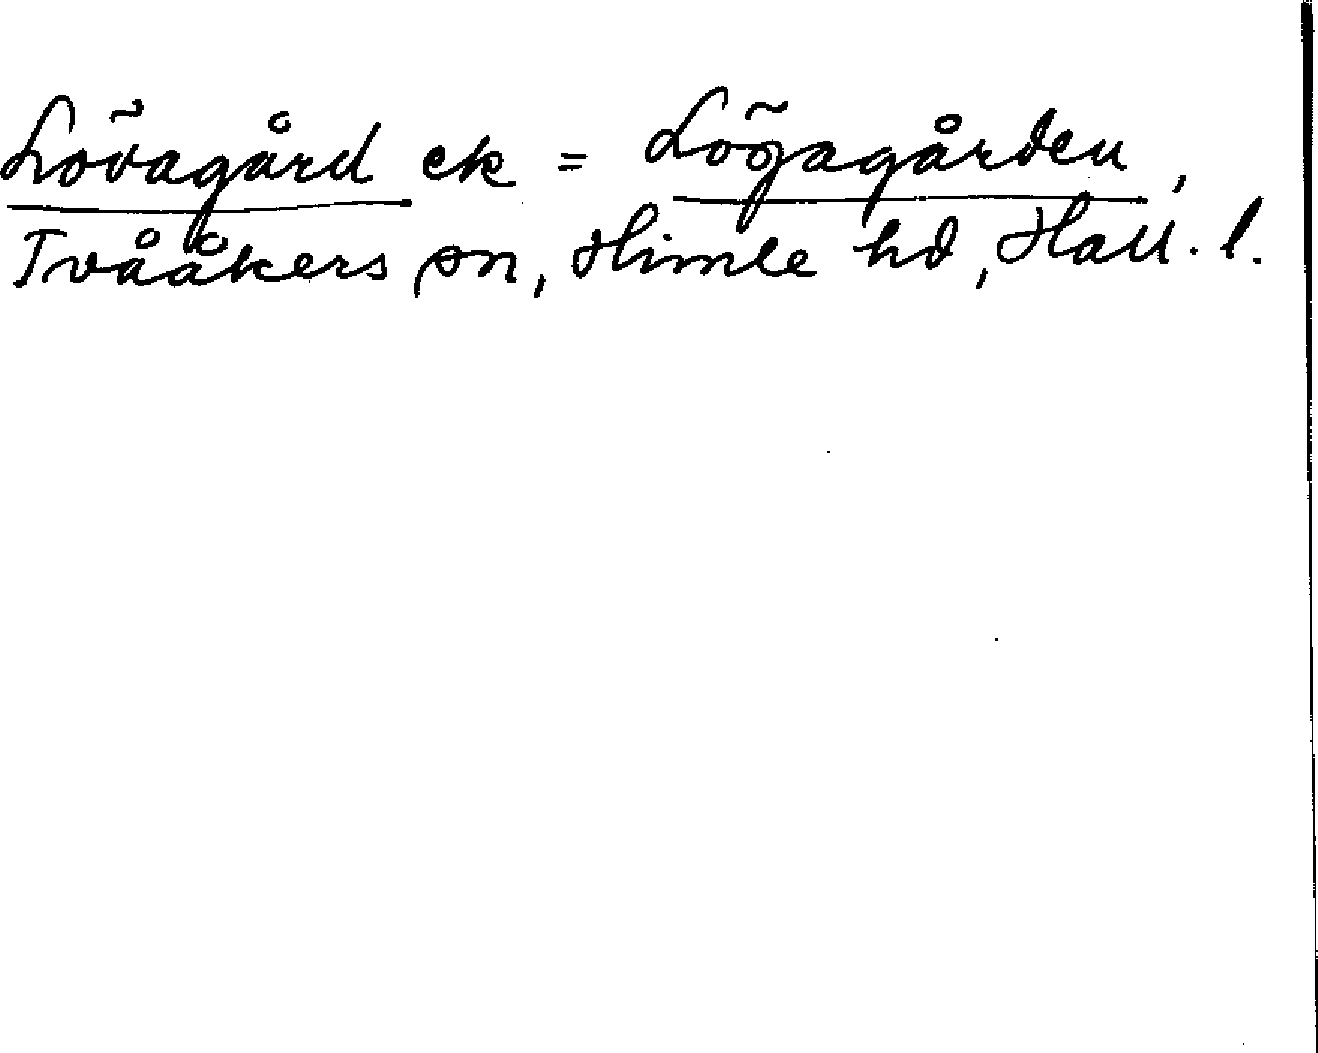 Lövagård ek = Lögagården,
Tvååkers sn, Himle hd, Hall. l.